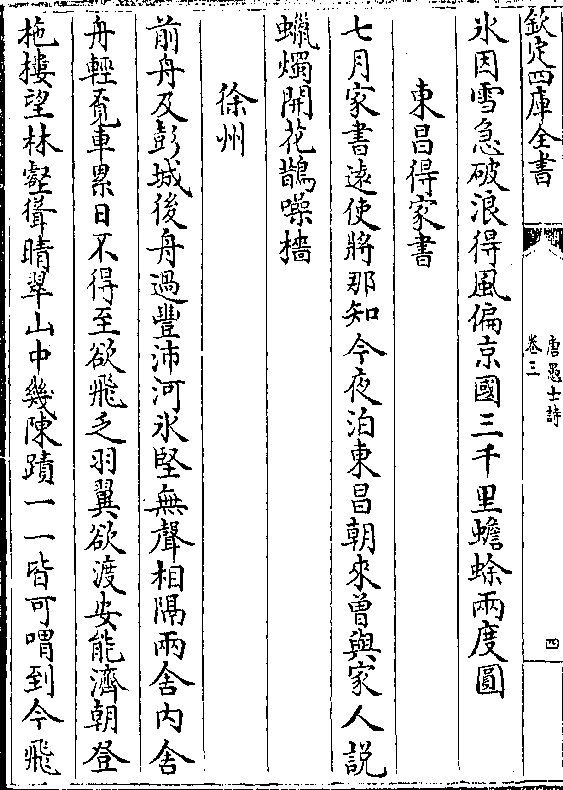 欽定四庫全書
唐愚士詩
卷三
四
氷因雪急破浪得風偏京國三千里蟾蜍兩度圓
東昌得家書
七月家書逺使將那知今夜泊東昌朝來曾與家人説
蠟燭開花鵲噪檣
徐州
前舟及彭城後舟過豐沛河氷堅無聲相隔兩舍内舍
舟輕覓車累日不得至欲飛乏羽翼欲渡安能濟朝登
柂摟望林壑聳晴翠山中幾陳蹟一一皆可喟到今飛